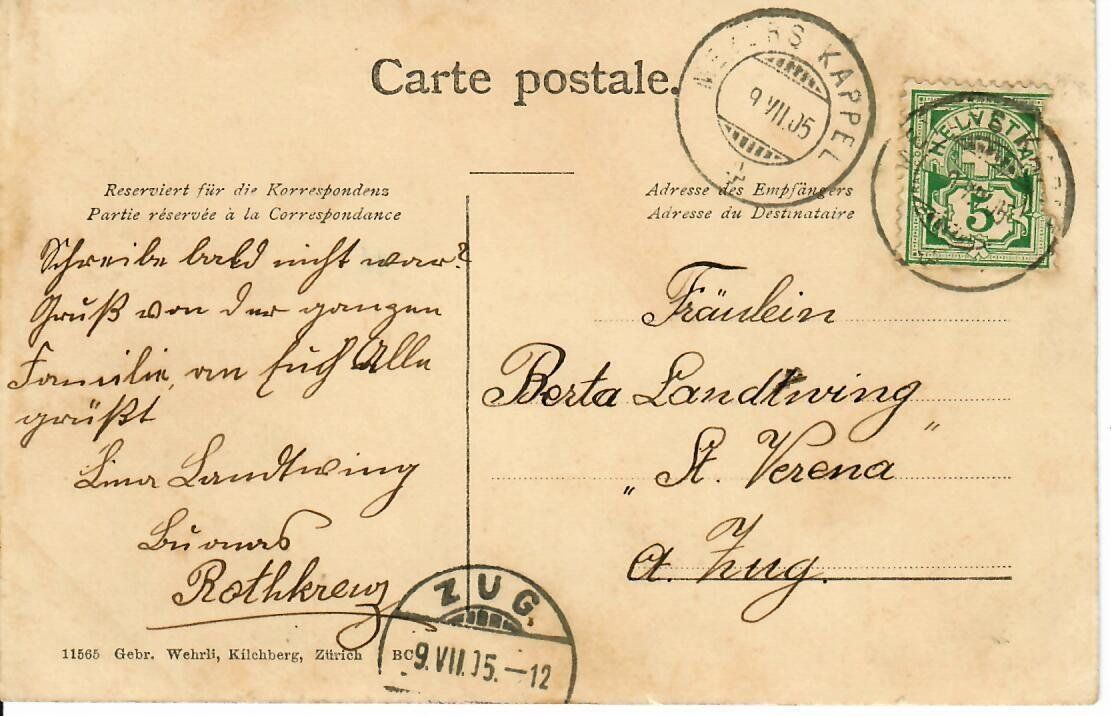 Carte postale.
MEIERS KAPPEL
9 VII.05
HELVETIA
5
Reserviert für die Korrespondenz
Partie réservée à la Correspondance
Adresse des Empfängers
Adresse du Destinataire
Schreibe bald nicht war?
Gruß von der ganzen
Familie, an Euch Alle
grüßt
Lina Landtwing
Buonas
Rothkreuz
Fräulein
Berta Landtwing
„ St. Verena "
a. Zug.
ZUG
9.VII.05.–12
11565 Gebr. Wehrli, Kilchberg, Zürich